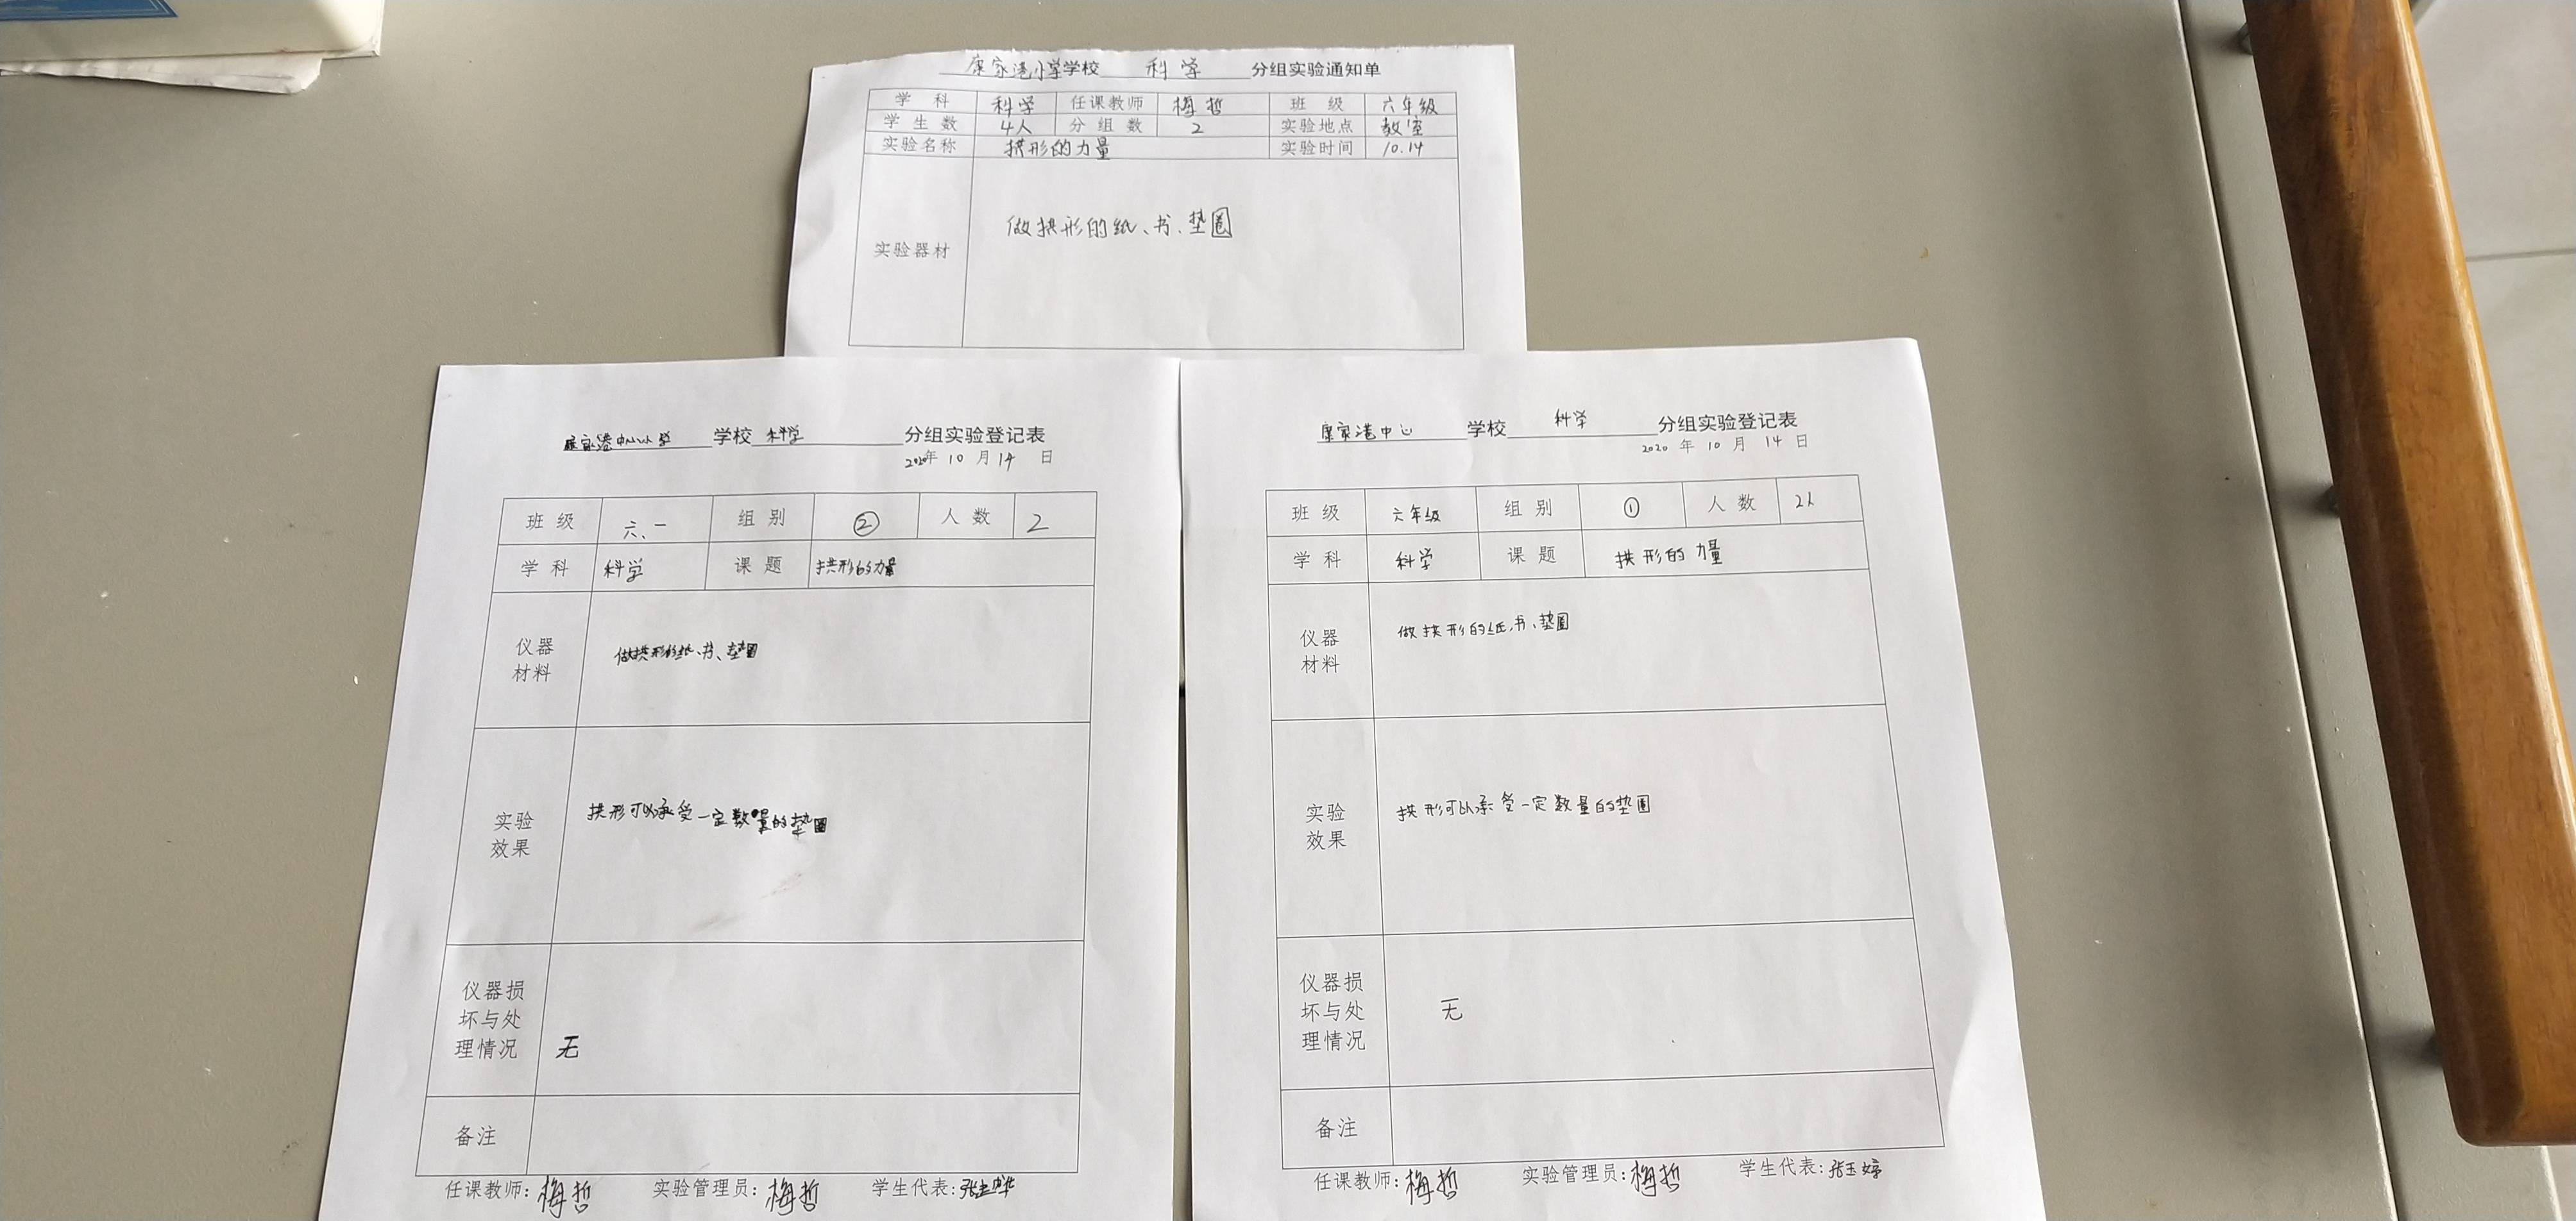 康家港小学学校 科学 分组实验通知单
学科 科学 任课教师 梅哲 班级 六年级
学生数 4人 分组数 2 实验地点 教室
实验名称 拱形的力量 实验时间 10.14
实验器材 做拱形的纸、书、垫圈
康家港中心小学 学校 科学 分组实验登记表
2020年 10 月 14 日
班级 六、一 组别 ② 人数 2
学科 科学 课题 拱形的力量
仪器材料 做拱形的纸、书、垫圈
实验效果 拱形可以承受一定数量的垫圈
仪器损坏与处理情况 无
备注
任课教师: 梅哲 实验管理员: 梅哲 学生代表:
康家港中心 学校 科学 分组实验登记表
2020 年 10 月 14 日
班级 六年级 组别 ① 人数 2人
学科 科学 课题 拱形的力量
仪器材料 做拱形的纸、书、垫圈
实验效果 拱形可以承受一定数量的垫圈
仪器损坏与处理情况 无
备注
任课教师: 梅哲 实验管理员: 梅哲 学生代表: 张玉婷